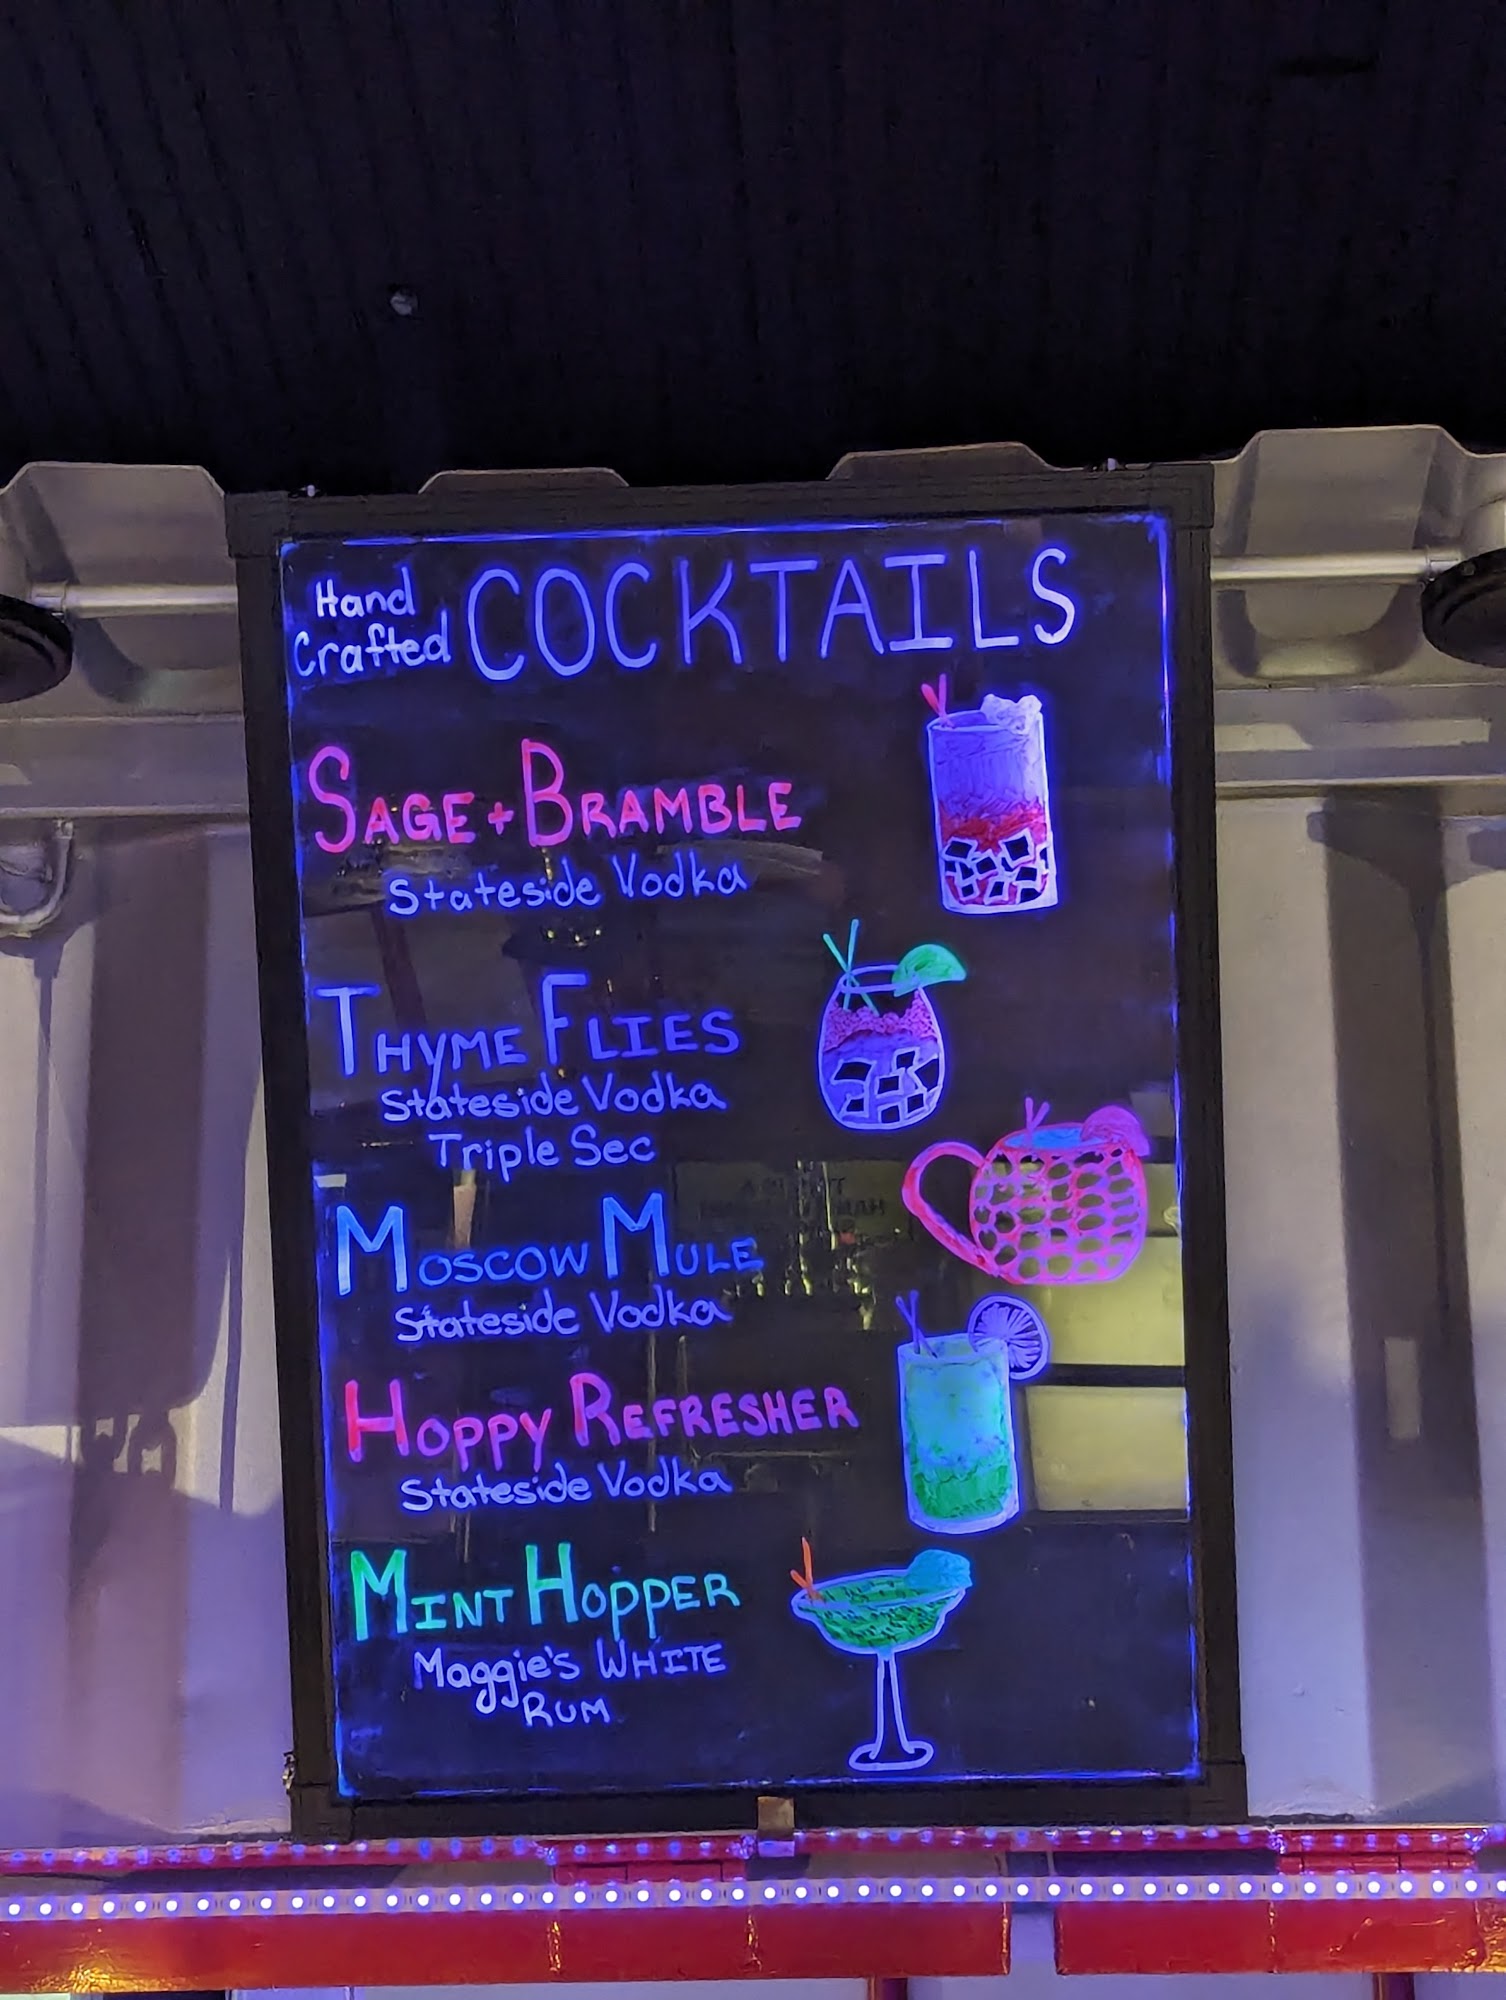 Hand
Crafted COCKTAILS
SAGE + BRAMBLE
Stateside Vodka
THYME FLIES
Stateside Vodka
Triple Sec
MOSCOW MULE
Stateside Vodka
HOPPY REFRESHER
Stateside Vodka
MINT HOPPER
Maggie's WHITE
RUM